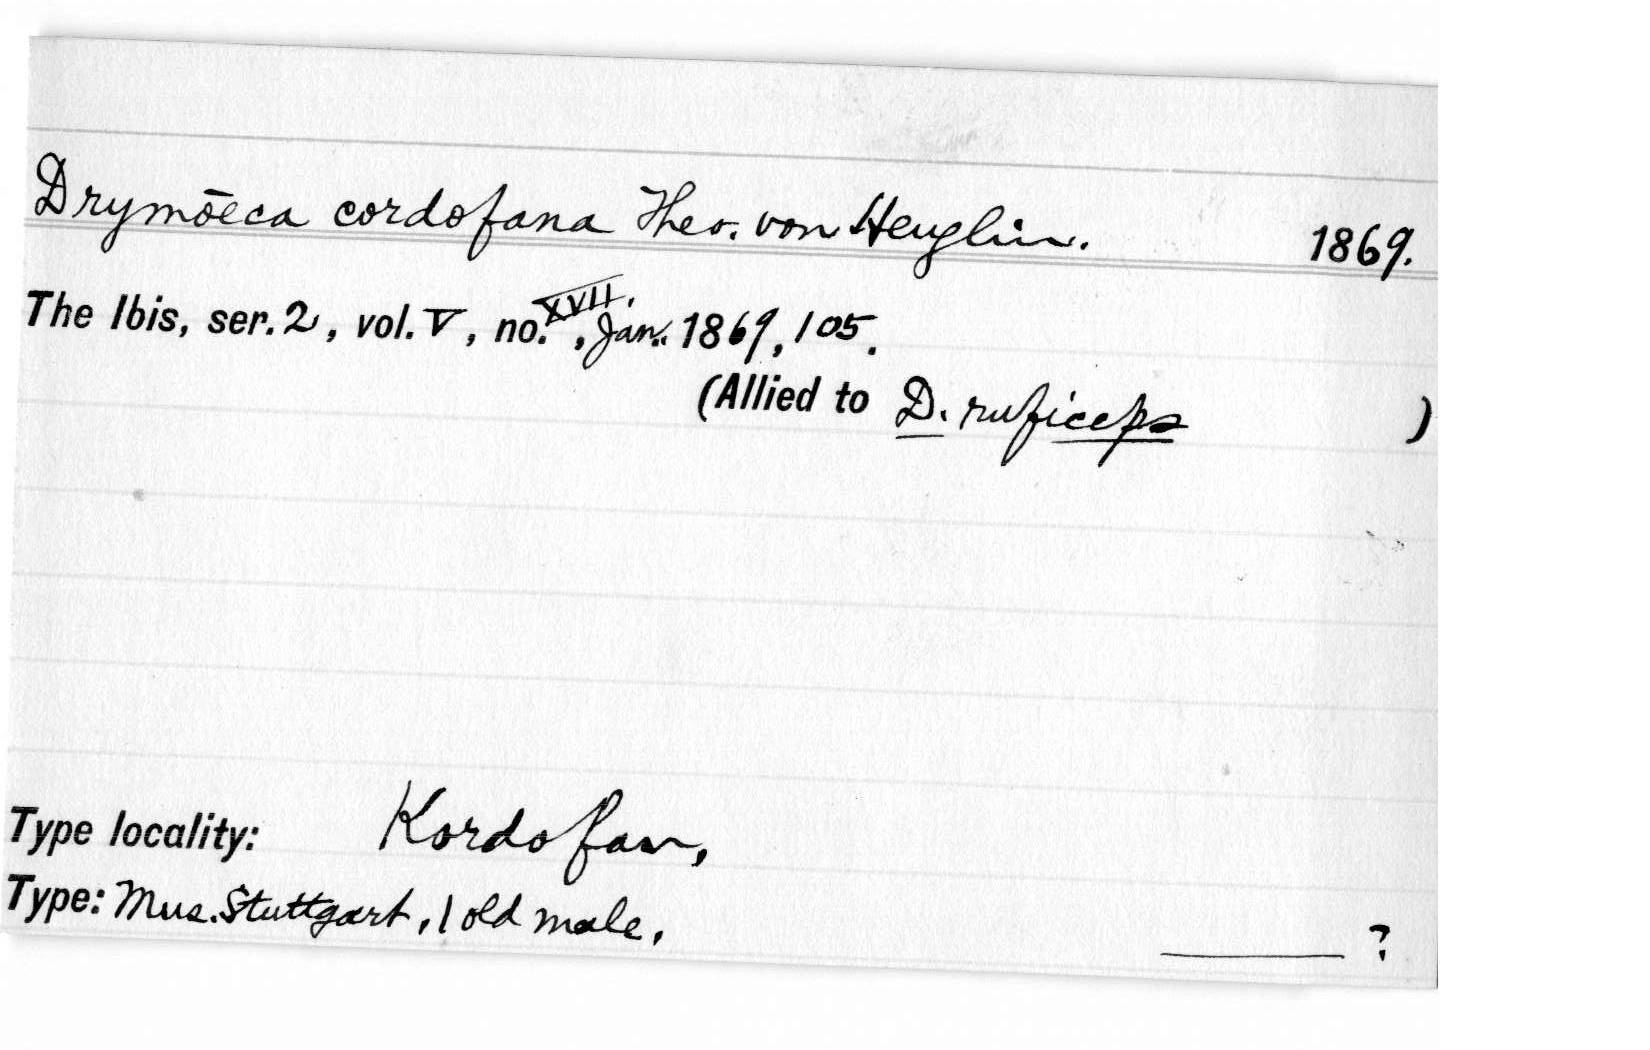 Drymōeca cordofana Theo. von Heuglin. 1869.
The Ibis, ser. 2, vol. V, no. XVII., Jan. 1869, 105.
(Allied to D. ruficeps )
Type locality: Kordofan,
Type: Mus. Stuttgart, 1 old male, ____ ?